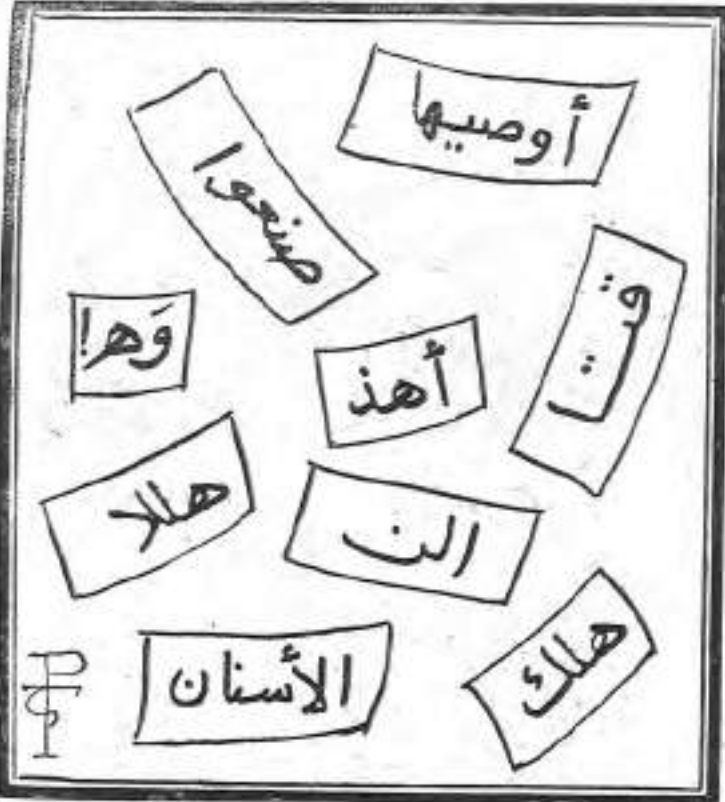 أوصيها
صنعوا
قتا
وَهر!
أهذ
هللا
الن
الأسنان
هلك